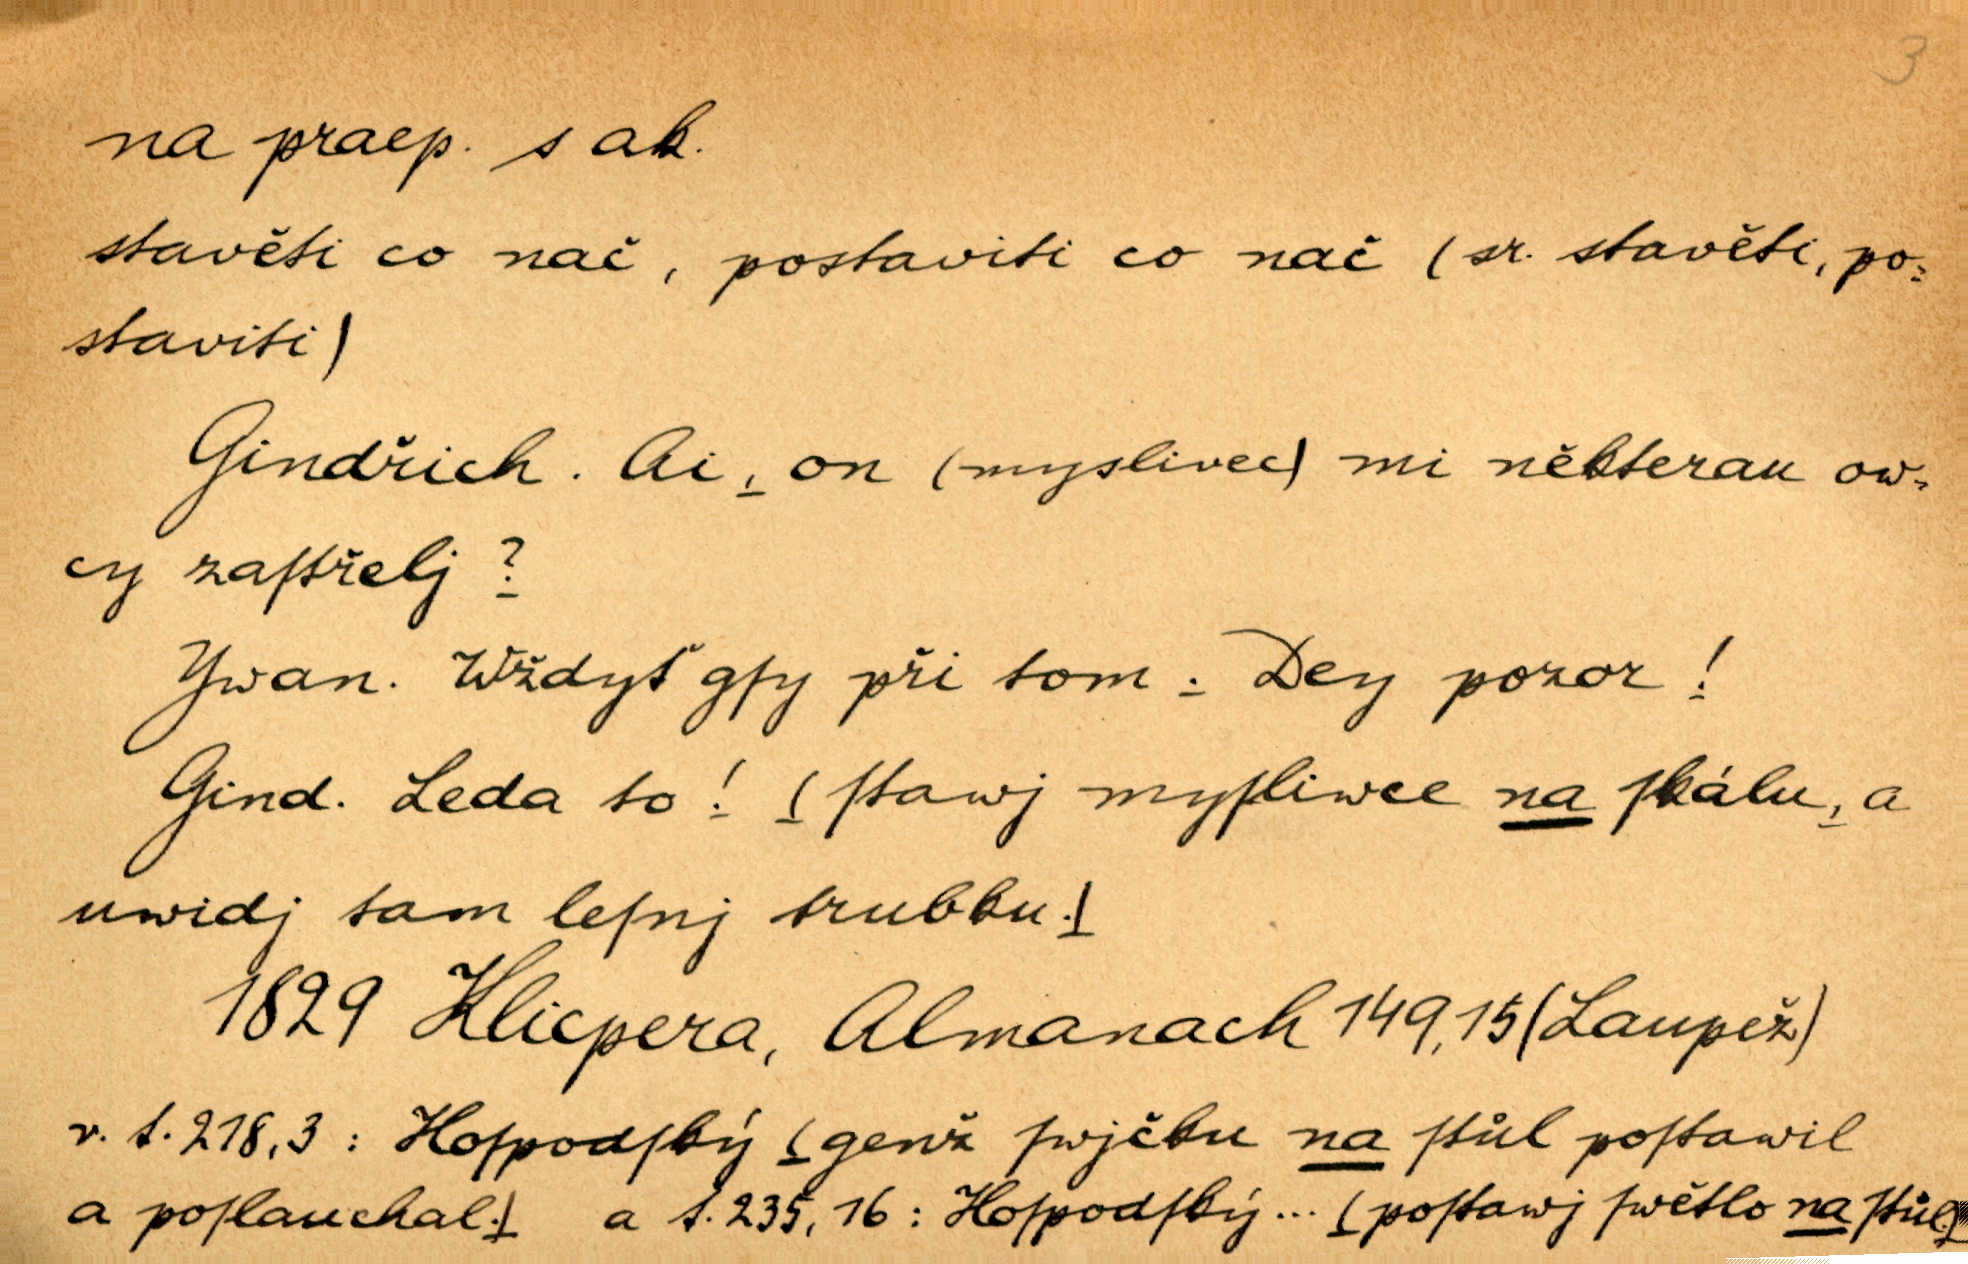 3
na praep. s ak.
stavěti co nač, postaviti co nač (sr. stavěti, po-
staviti)
Gindřich. Ai, on (myslivec) mi některau ow-
cy zaſtřelj?
Ywan. Wždyť gſy při tom. Dey pozor!
Gind. Leda to! (ſtawj myſliwce na ſkálu, a
uwidj tam leſnj trubku.)
1829 Klicpera, Almanach 149,15 (Laupež)
v. t. 218,3: Hoſpodſký (genž ſwjčku na ſtůl poſtawil
a poſlauchal.) a t. 235,16: Hoſpodſký... (poſtawj ſwětlo na ſtůl.)